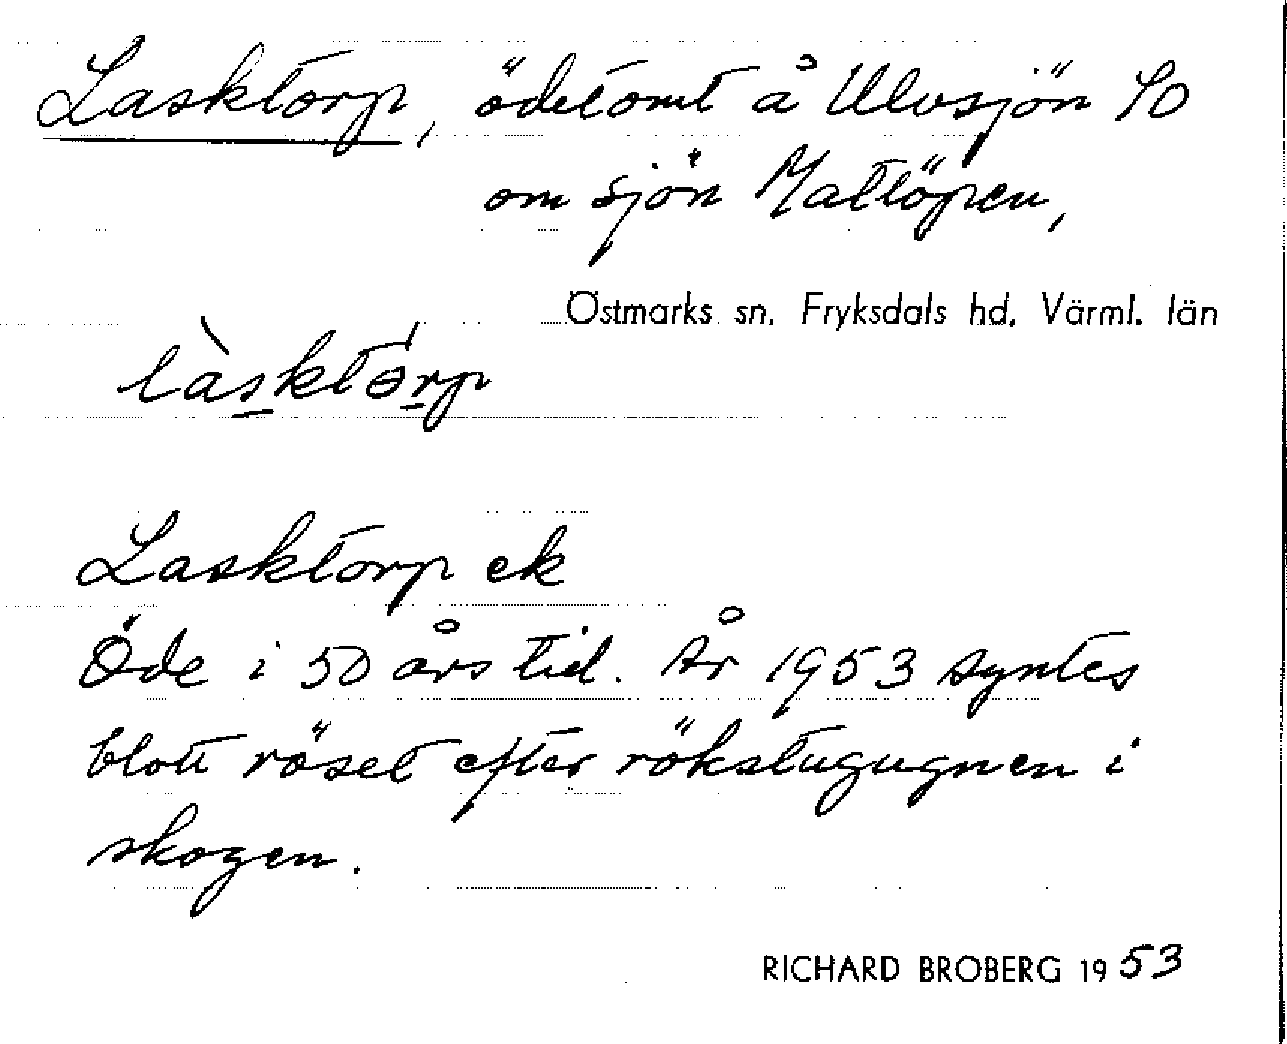 Lasktorp, ödetomt å Ulvsjön SO
om sjön Mattöpen,
Östmarks sn. Fryksdals hd. Värml. län
làsktórp
Lasktorp ek
Öde i 50 års tid. År 1953 syntes
blott röset efter rökstugugnen i
skogen.
RICHARD BROBERG 1953